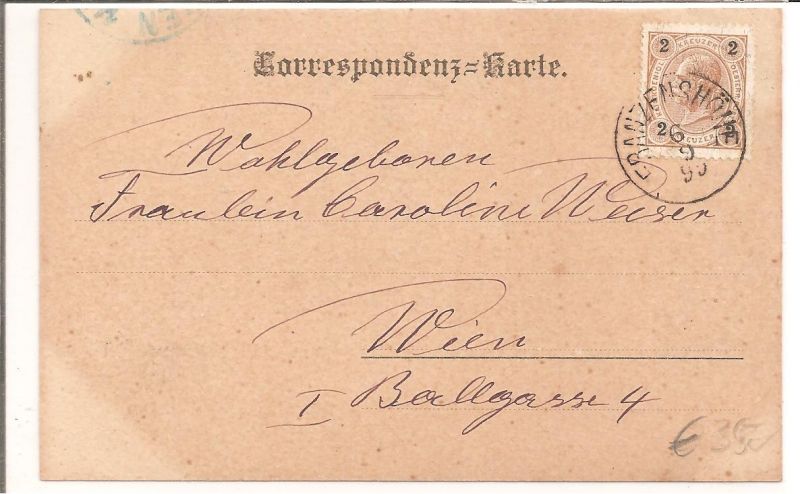 EN
Correspondenz=Karte.
2 KREUZER 2
2 KREUZER 2
FRANZENSHÖHE
6
9
99
Wohlgeboren
Fräulein Caroline Weiser
Wien
I Ballgasse 4
€ 35,-